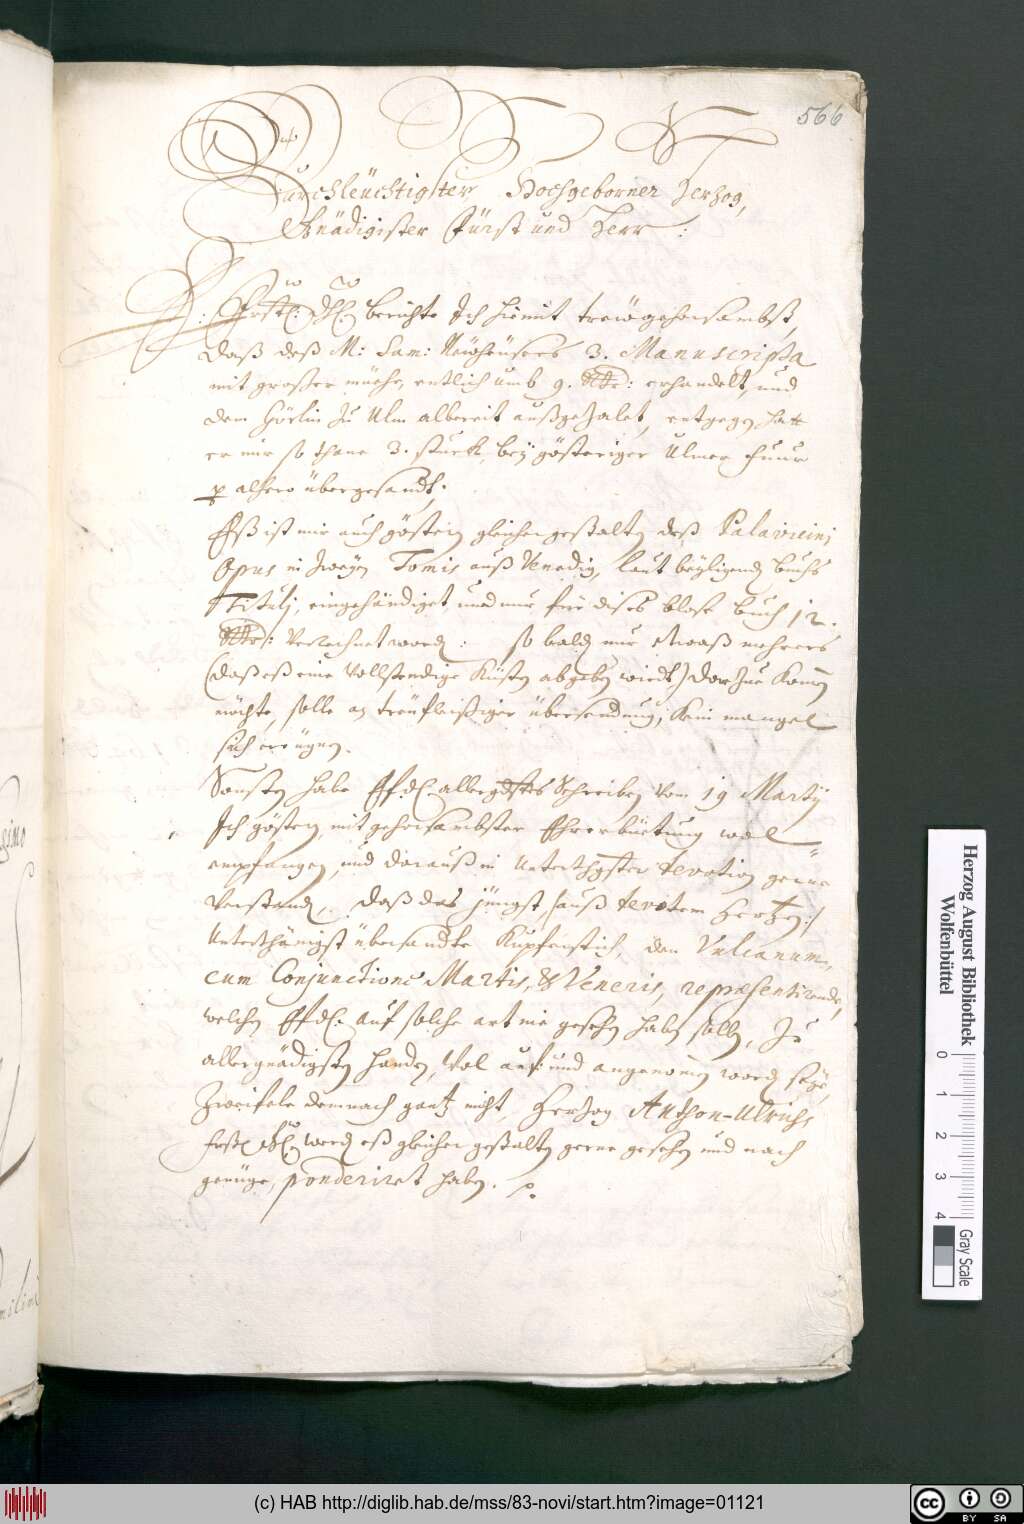 566
Durchleüchtigster Hochgeborner Herzog,
Gnädigister Fürst und Herr:
Frstl: Dl: berichte Ich hiemit trewgehorsambst,
daß deß M: Sam: Neüheusers 3. Manuscripta
mit großer müehe, entlich umb 9. Rthr: erhandelt, und
dem Hörlin zu Ulm albereit außgezalet, entgegen hatt
er mir so thane 3. stuckh, bey gösteriger Ulmer fuur
p alhero übergesandt;
Eß ist mir auch göstern gleicher gestalten deß Palavicini
Opus in zweyen Tomis auß Venedig, laut beyligendn Buchs
Titulj, eingehändiget, und mir für dises blose buch 12.
Rthr: Verrechnet wordn: so baldn mir etwaß mehrers
(daß es eine Vollstendige Küsten abgeben wirdt) darzue komen
möchte, solle an treufleißiger übersendung, kein mangel
sich ereügnen.
Sonsten habe EfDl. allergdstes Schreiben vom 19 Martij
Ich göstern, mit gehorsambster Ehrerbüetung wol
empfangen, und darauß in Unterthgster devotion gerne
Verstanden, daß das jüngst, (auß devotem Hertzen:)
Unterthänigst übersandte Kupferstich, den Vulcanum,
cum Conjunctione Martis, & Veneris, repræsentirende,
welchen EfDl. auf solche art nie gesehen haben sollen, Zu
allergnädigsten handen, Wol auf: und angenomen worden seye,
Zweifele demnach gantz nicht, Herzog Anthon-Ulrichs
frstl. Dl. werden eß gleicher gestalten gerne gesehen und nach
genüge, ponderiret haben. p.
Herzog August Bibliothek
Wolfenbüttel
0 1 2 3 4
Gray Scale
(c) HAB http://diglib.hab.de/mss/83-novi/start.htm?image=01121
cc BY SA